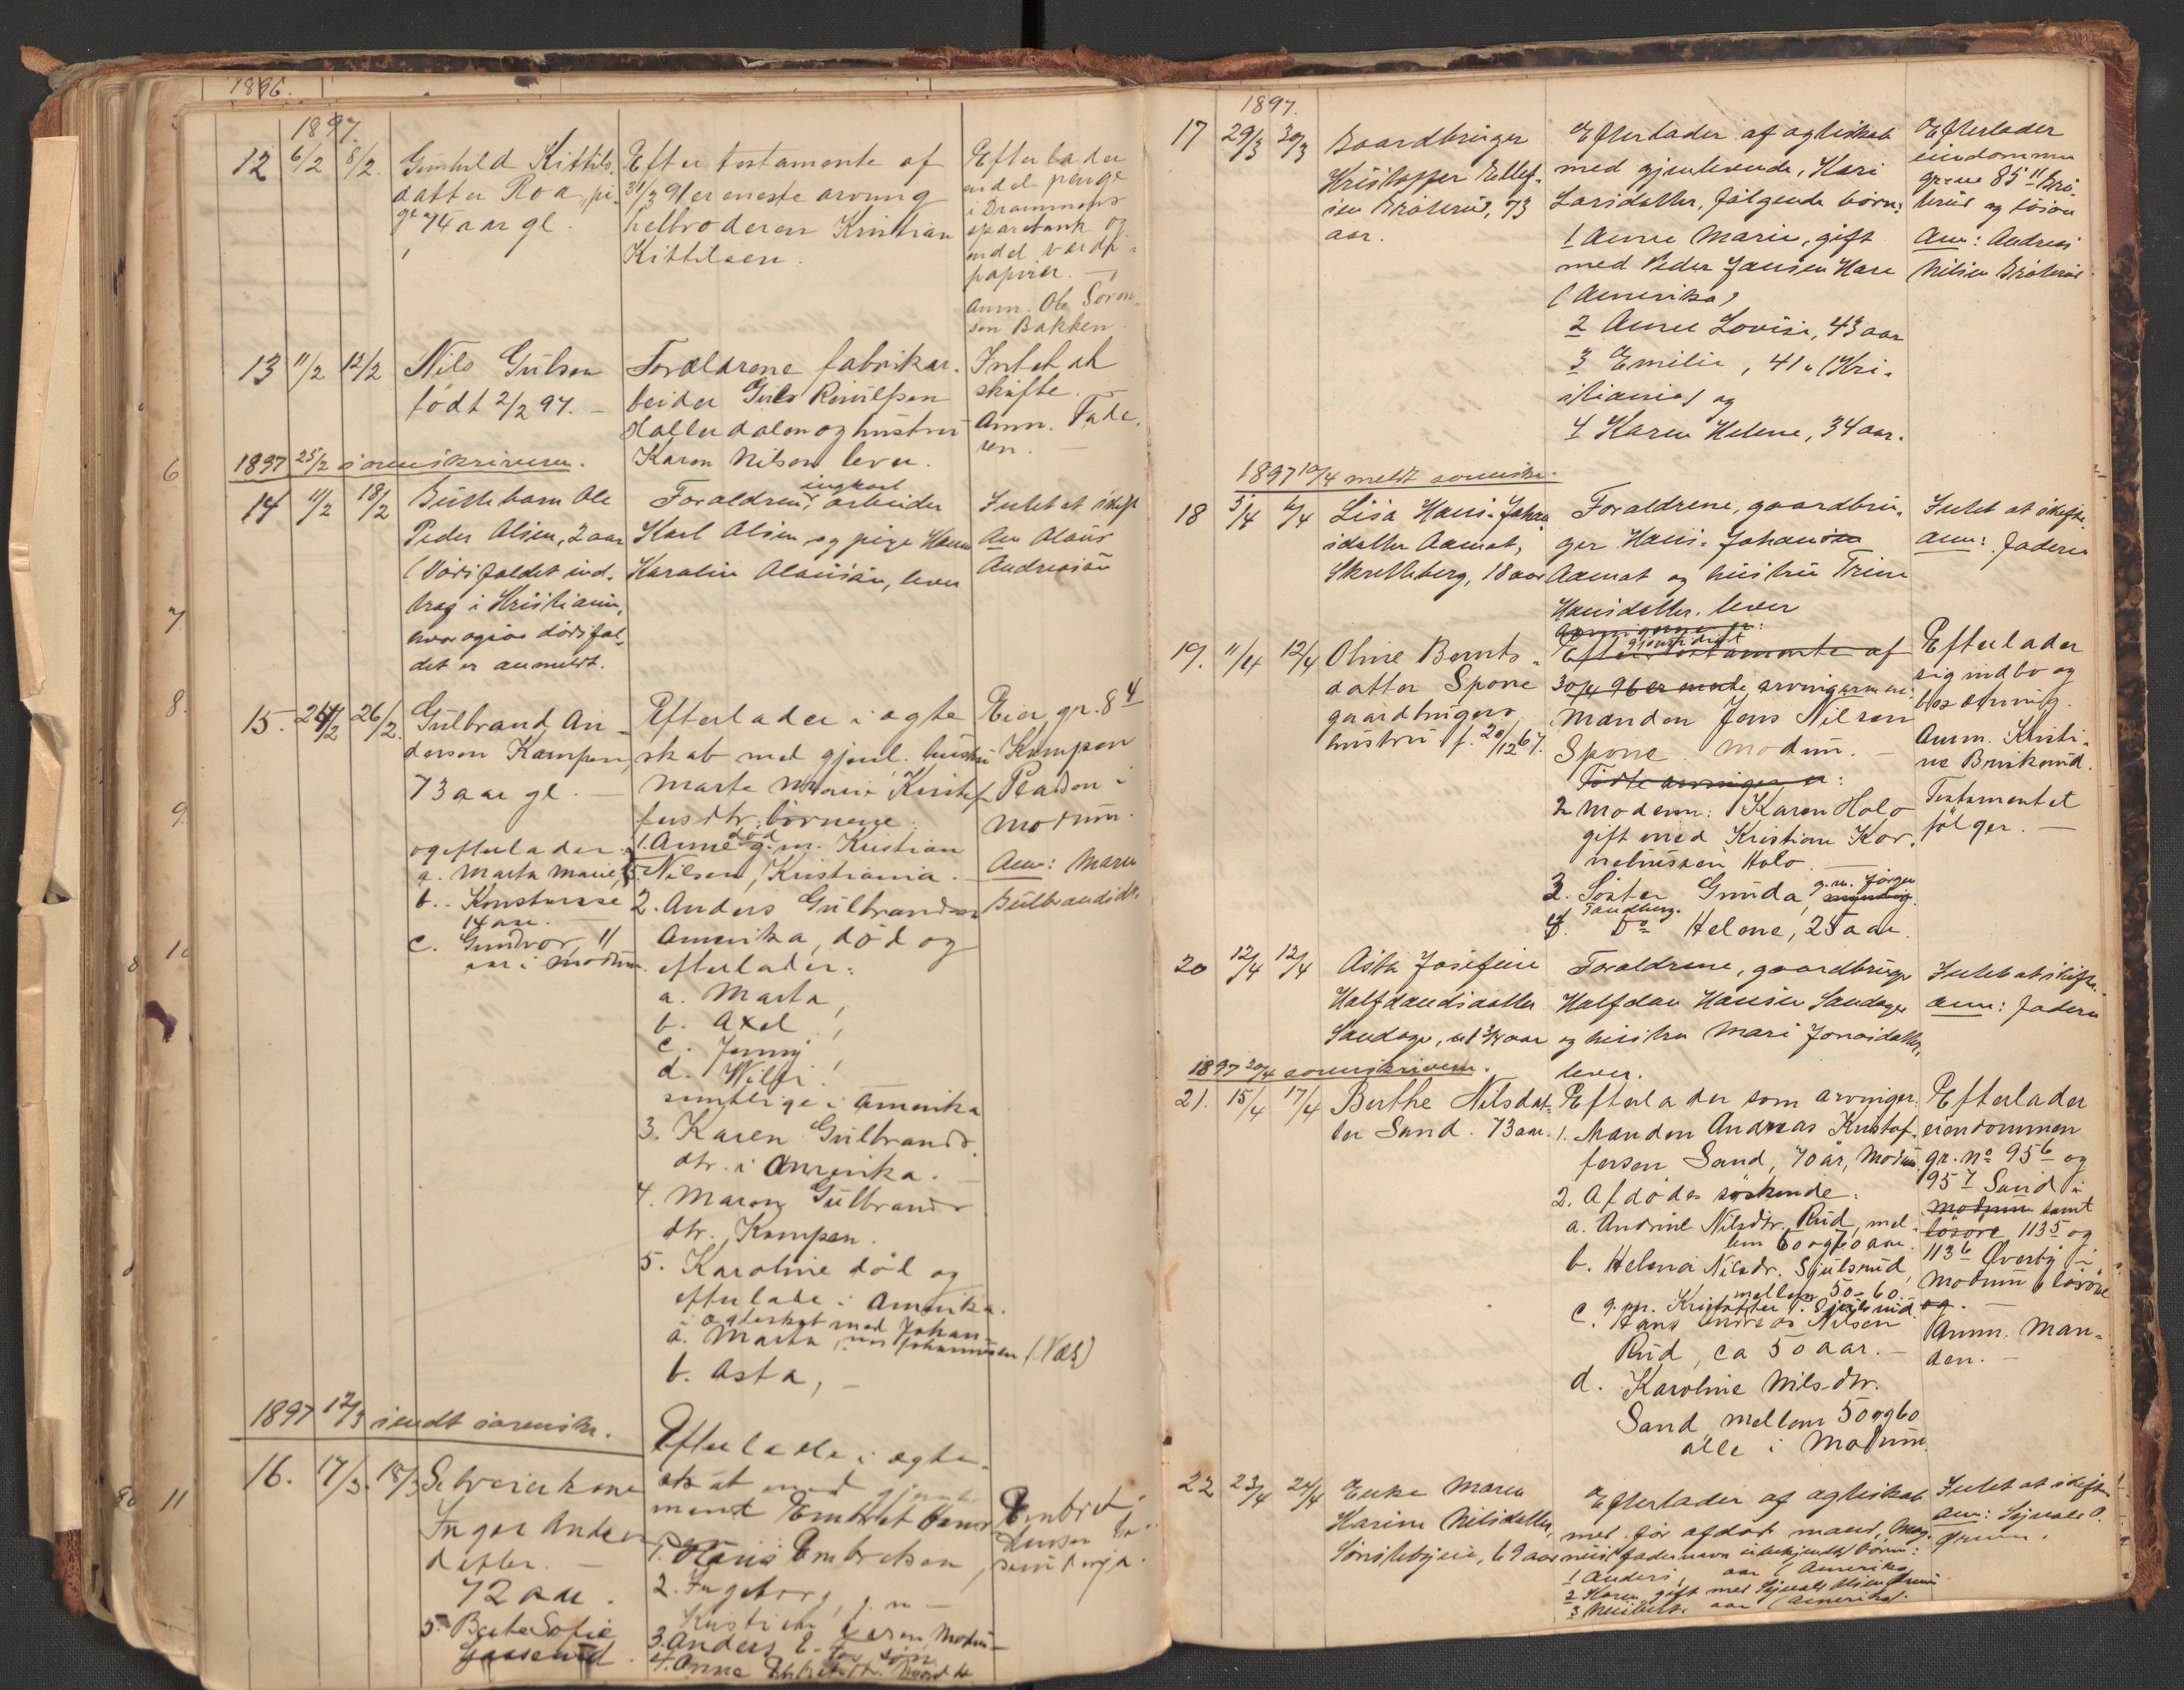 1896.
1897.
12 6/2 8/2. Gunhild Kittils
datter Roa, pi-
ge 74 aar gl.
Efter testamente af
31/3 91 er eneste arving
helbroderen Kristian
Kittilsen.
Efterlader
endel penge
i Drammens
sparebank og
endel værdi
papirer. —
Anm. Ole Soren-
sen Bakken.
13 11/2 12/2 Nils Gulsen
født 2/2 97. —
Forældrene fabrikar-
beider Guls
Hallerdalen og hustru
Karen Nilsen lever.
Intet at
skifte. —
Anm. Fade-
ren. —
1897 25/2 sorenskriveren.
14 11/2 18/2 Guttebarn Ole
Peder Olsen, 2 aar
(Dødsfaldet ind-
trag i Kristiania,
hvor ogsaa dødsfal-
det er anmeldt.
Forældrene, ungkarl arbeider
Karl Olsen og pige
Karoline Olausen, lever
Intet at skift
Anm Olaus
Andreasen
15. 24/2 26/2. Gulbrand An-
dersen Kampen,
73 aar gl. —
og efterlader
a. Marta Marie,
b. Konstanse
14 aar. —
c. Gundvor, 11
aar i Modum.
Efterlader i ægte
skab med gjenl. hustru
Marte Marie Kristof
fersdtr. børnene:
1. Anne død g. m. Kristian
Nilsen, Kristiania.
2. Anders Gulbrandsen
Amerika, død og
efterlader:
a. Marta,
b. Axel,
c. Jenny,
d. Willi.
samtlige i Amerika
3. Karen Gulbrands
dtr. i Amerika. —
4. Maren Gulbrands
dtr. Kampen.
5. Karoline død og
efterlade i Amerika.
i ægteskab med Johan
a. Marta, Johannesen
b. Asta, —
Eier gr. 8 4
Kampen
i
Modum.
Anm: Maren
Gulbrandsdt.
1897 12/3 sendt sorenskr.
16. 17/3. 18/3 kone
Inger Anders
datter. —
72 aar.
5. Berte Sofie
Efterlade i ægte-
skab med
mand Embret Hans
1. Hans Embretsen,
2. Ingeborg, g. m —
Kristian Modum
3. Anders E.
4. Anne
Embret
1897.
17 29/3 30/3 Gaardbruger
Kristoffer Ellef-
sen Braaterud, 73
aar.
Efterlader af ægteskab
med gjenlevende, Kari
Larsdatter, følgende børn:
1 Anne Marie, gift
med Peder Jansen Hare
(Amerika)
2 Anne Lovise, 43 aar
3 Emilie, 41 " (Kri-
stiania) og
4 Karen Helene, 34 aar.
Efterlader
eiendommen
gr. 85 11 Braa-
terud og løsøre
Anm: Andreas
Nilsen Braaterud
1897 10/4 meldt sorenskr.
18 5/4 6/4 Lisa Hans-Johan
sdatter Aamot,
Skretteberg, 18 aar
Forældrene, gaardbru-
ger Hans-Johansen
Aamot og hustru Trine
Hansdatter. lever
Intet at skifte.
Anm: faderen
19. 11/4 12/4 Oline Bernts-
datter Spone
gaardbrugers
hustru f. 20/12 67.
Arvingerne er:
Efter gjensidigt testamente af
30/4 96 er eneste arvinger
manden Jens Nilsen
Spone. Modum. —
Fødte arvinger er:
2 Moderen: Karen Holo
gift med Kristian Kor-
neliussen Holo. —
3. Søster Gunda, g. m. Jørgen
Sandberg. myndig.
4. Do Helene, 25 aar.
Efterlader
sig indbo og
besætning.
Anm. Kristi-
ne Brukerud.
Testamentet
følger. —
20 12/4 12/4 Asta Josefine
Halfdansdatter
Sandage, 1 3/4 aar
Forældrene, gaardbruger
Halfdan Hansen Sandage
og hustru Mari Jonasdatter,
lever.
Intet at skifte.
Anm: faderen
1897 20/4 sorenskriveren.
21. 15/4 17/4 Berthe Nilsdat-
ter Sand. 73 aar.
Efterlader som arvinger:
1. Manden Andreas Kristof-
fersen Sand, 70 år, Modum
2. Afdødes søskende:
a. Andrine Nilsdtr. Rud, mel-
lem 60 og 70 aar.
b. Helena Nilsdr. Sjulsrud,
mellem 50-60.
g. m. Kristoffer P. Sjulsrud.
c. Hans Andreas Nilsen
Rud, ca 50 aar. —
d. Karoline Nilsdtr.
Sand, mellem 50 og 60
alle i Modum.
Efterlader
eiendommen
gr. No 95 6 og
95 7 Sand i
Modum samt
løsøre 113 5 og
113 6 Øverby i
Modum løsøre
og. —
Anm. Man-
den. —
22 23/4 24/4 Enke Maren
Karine Nilsdatter,
Sønstebyeie, 69 aar
Efterlader af ægteskab
med før afdød mand, Mag-
nus fadernavn ubekjendt børn:
1 Anders, aar (Amerika
2 Karen gift med Sigvald Olsen Grunn
3 aar (Amerika).
Intet at skifte
Anm: Sigvald O.
Grunn.